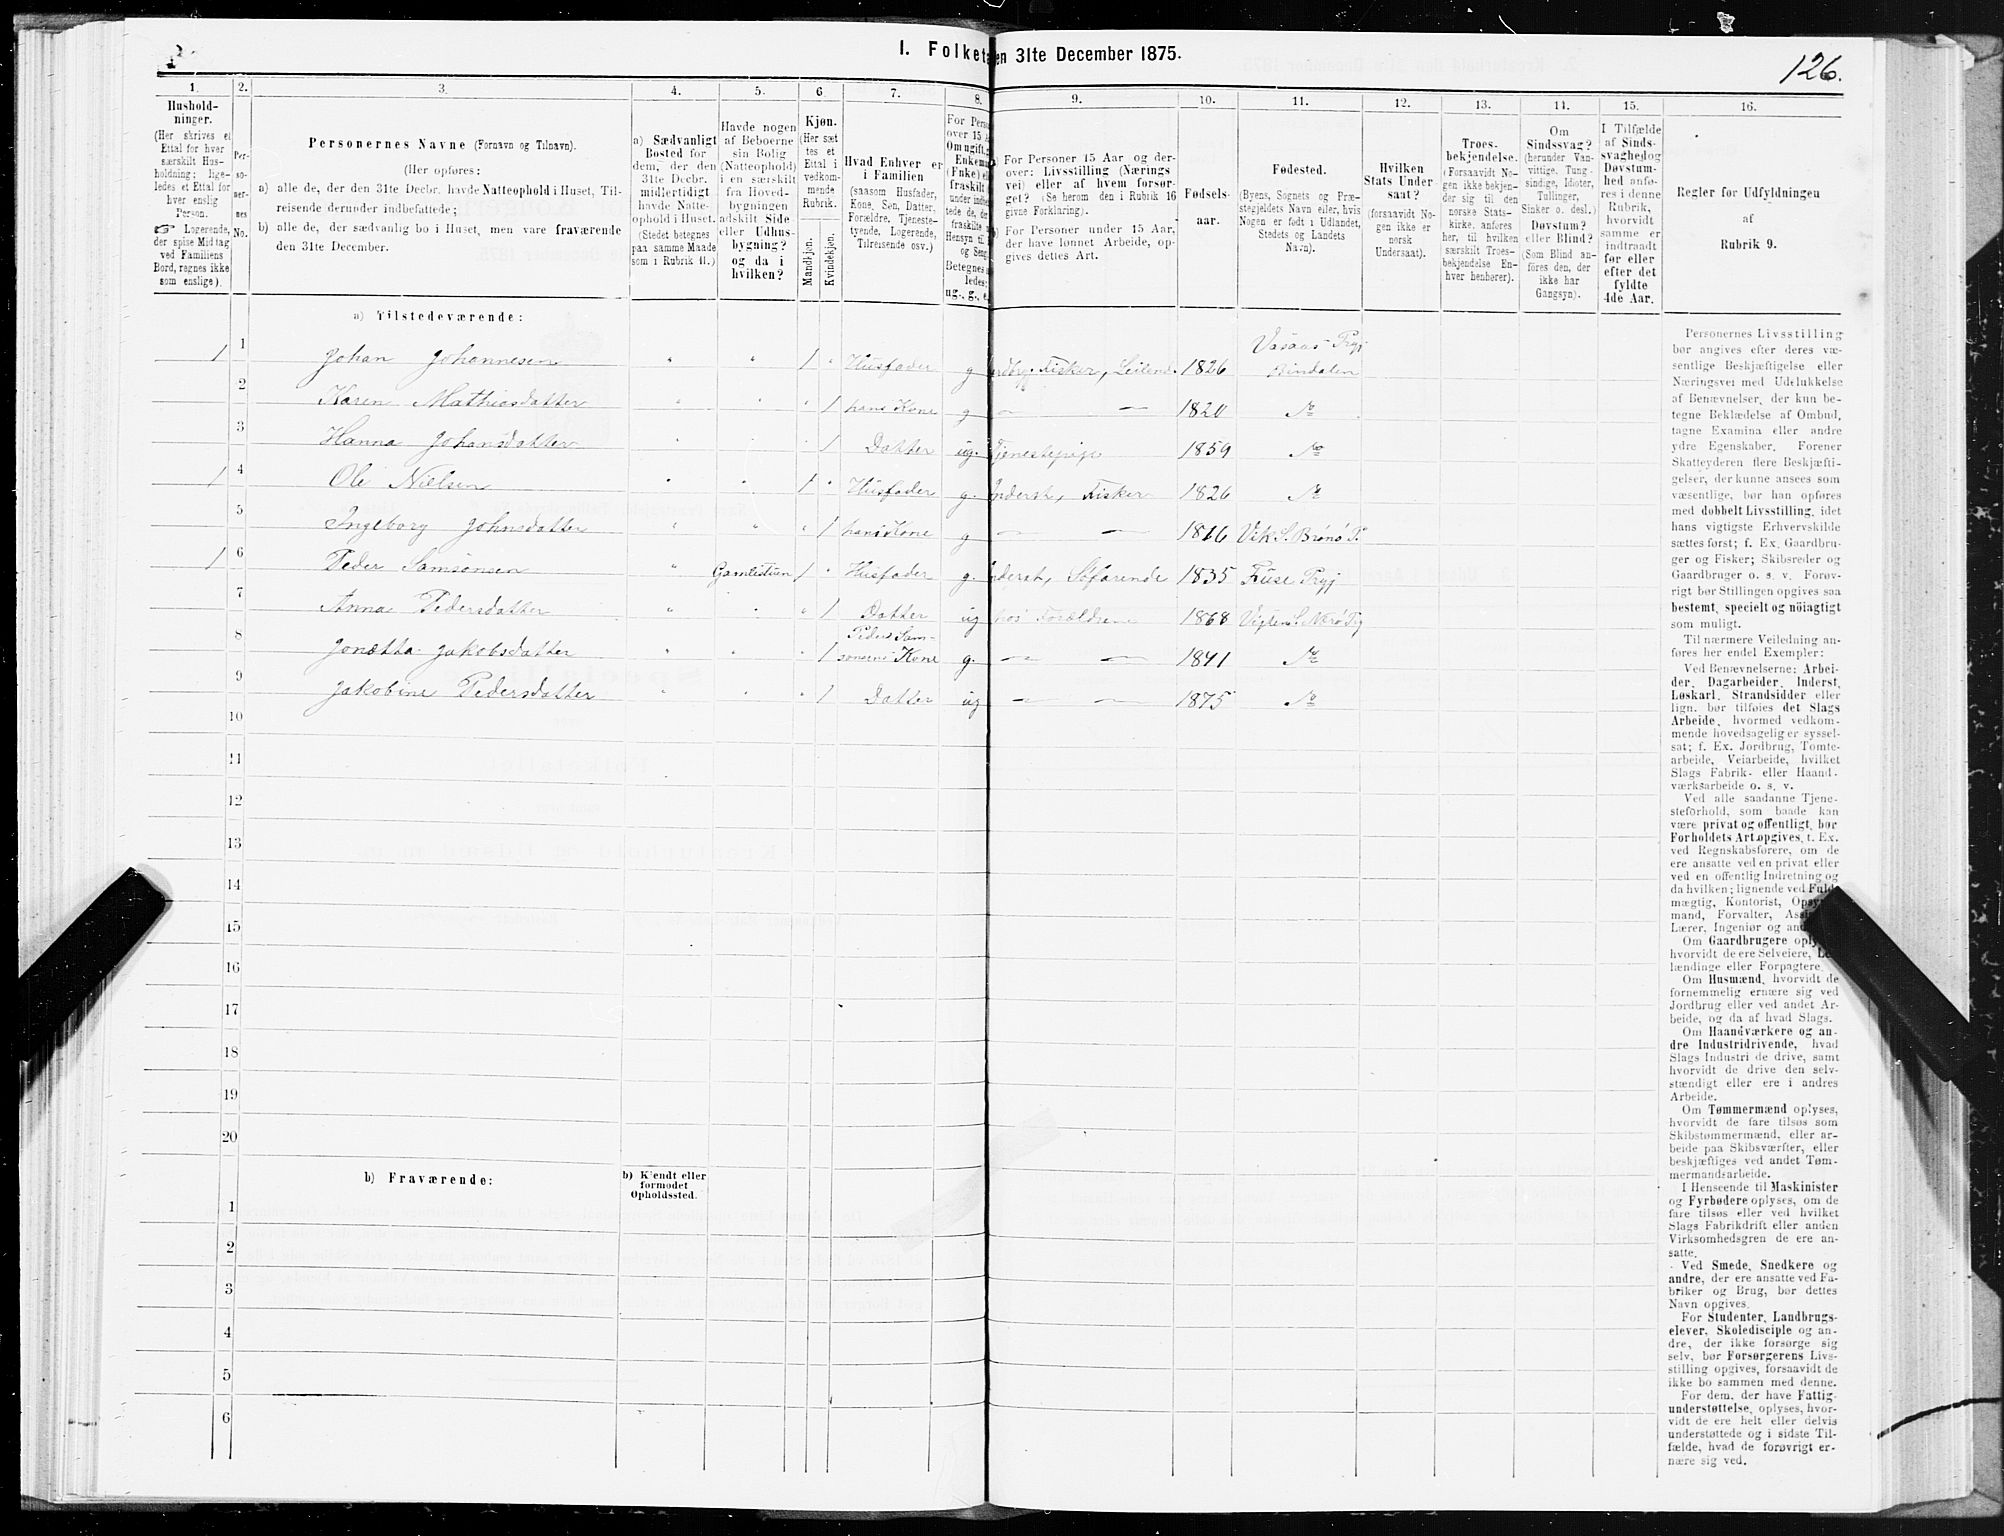 I. Folketa
en 31te December 1875.
126.
1.
2.
3.
4.
5.
6
7.
8.
9.
10.
11.
12.
13.
14.
15.
16.
Hushold-
ninger.
(Her skrives et
Ettal for hver
særskilt Hus-
holdning; lige-
ledes et Ettal for
hver enslig
Person.
☞ Logerende,
der spise Middag
ved Familiens
Bord, regnes ikke
som enslige).
Per-
so-
ner-
nes
No.
Personernes Navne (Fornavn og Tilnavn).
(Her opføres:
a) alle de, der den 31te Decbr. havde Natteophold i Huset, Til-
reisende derunder indbefattede;
b) alle de, der sædvanlig bo i Huset, men vare fraværende
den 31te December.
a) Sædvanligt
Bosted for
dem, der den
31te Decbr.
midlertidigt
havde Natte-
ophold i Huset.
(Stedet betegnes
paa samme Maade
som i Rubrik 11.)
Havde nogen
af Beboerne
sin Bolig
(Natteophold)
i en særskilt
fra Hoved-
bygningen
adskilt Side-
eller Udhus-
bygning?
og da i
hvilken?
Kjøn.
(Her sæt
tes et
Ettal i
vedkom-
mende
Rubrik.
Mandkjøn.
Kvindekjøn.
Hvad Enhver er
i Familien
(saasom Husfader,
Kone, Søn, Datter,
Forældre, Tjeneste-
tyende, Logerende,
Tilreisende osv.)
For Pers
over 15 A
Om ugift,
Enkema
(Enke) el
fraskilt
Betegnes
ledes:
ug., g., e.
For Personer 15 Aar og der-
over: Livsstilling (Nærings
vei) eller af hvem forsør-
get? (Se herom den i Rubrik 16
givne Forklaring).
For Personer under 15 Aar,
der have lønnet Arbeide, op-
gives dettes Art.
Fødsels-
aar.
Fødested.
(Byens, Sognets og Præ-
stegjeldets Navn eller, hvis
Nogen er født i Udlandet,
Stedets og Landets
Navn).
Hvilken
Stats Under
saat?
(forsaavidt No-
gen ikke er
norsk
Undersaat).
Troes-
bekjendelse.
(Forsaavidt No-
gen ikke bekjen-
der sig til den
norske Stats-
kirke, anføres
her, til hvilken
særskilt Troes-
bekjendelse En-
hver henhører).
Om
Sindssvag?
(herunder Van-
vittige, Tung-
sindige, Idioter,
Tullinger,
Sinker o. desl.)
Døvstum?
eller Blind?
(Som Blind an-
føres den, der
ikke har
Gangsyn).
I Tilfælde
af Sinds-
svaghed og
Døvstum-
hed anfø-
res i denne
Rubrik,
hvorvidt
samme er
indtraadt
før eller
efter det
fyldte
4de Aar.
Regler for Udfyldningen
af
Rubrik 9.
a) Tilstedeværende:
1 1 Johan Johannesen " " 1 " Husfader g Jordbr. Fisker, Leilend. 1826 Vasaas Prgj Bindalen
2 Karen Mathiasdatter " " " 1 hans Kone g — — 1820 do
3 Hanna Johansdatter " " " 1 Datter ug. Tjenestepige 1859 do
1 4 Ole Nielsen " " 1 " Husfader g. Inderst, Fisker 1826 do
5 Ingeborg Johnsdatter " " " 1 hans Kone g — — 1816 Vik S. Brønø P.
1 6 Peder Samsonsen " Gamlestuen 1 " Husfader g. Inderst, Søfarende 1835 Fuse Prgj
7 Anna Pedersdatter " " " 1 Datter ug hos Forældrene 1868 Vigten S. Nærø Pg
8 Jonetta Jakobsdatter " " " 1 Peder Sam-
sonsens Kone g. — — 1841 do
9 Jakobine Pedersdatter " " " 1 Datter ug — — 1875 do
10
11
12
13
14
15
16
17
18
19
20
b) Fraværende:
b) Kjendt eller
formodet
Opholdssted.
1
2
3
4
5
6
Personernes Livsstilling
bør angives efter deres væ-
sentlige Beskjæftigelse eller
Næringsvei med Udelukkelse
af Benævnelser, der kun be-
tegne Beklædelse af Ombud,
tagne Examina eller andre
ydre Egenskaber. Forener
Skatteyderen flere Beskjæfti-
gelser, der kunne ansees som
væsentlige, bør han opføres
med dobbelt Livsstilling, idet
hans vigtigste Erhvervskilde
sættes først; f. Ex. Gaardbru-
ger og Fisker; Skibsreder og
Gaardbruger o. s. v. Forøv-
rigt bør Stillingen opgives saa
bestemt, specielt og nöiagtigt
som muligt.
Til nærmere Veiledning an-
føres her endel Exempler:
Ved Benævnelserne: Arbei-
der, Dagarbeider, Inderst,
Løskarl, Strandsidder eller
lign. bør tilføies det Slags
Arbeide, hvormed vedkom-
mende hovedsagelig er syssel-
sat; f. Ex. Jordbrug, Tomte-
arbeide, Veiarbeide, hvilket
Slags Fabrik- eller Haand-
værksarbeide o. s. v.
Ved alle saadanne Tjene-
steforhold, som baade kan
være privat og offentligt, bør
Forholdets Art opgives, t. Ex.
ved Regnskabsførere, om de
ere ansatte ved en privat eller
ved en offentlig Indretning og
da hvilken; lignende ved Fuld-
mægtig, Kontorist, Opsyns-
mand, Forvalter, Assi
Lærer, Ingeniør og an
Om Gaardbrugere oply
hvorvidt de ere Selveiere, Le
lændinge eller Forpagtere.
Om Husmænd, hvorvidt de
fornemmelig ernære sig ved
Jordbrug eller ved andet Ar-
beide, og da af hvad Slags.
Om Haandværkere og an-
dre Industridrivende, hvad
Slags Industri de drive, samt
hvorvidt de drive den selv-
stændigt eller ere i andres
Arbeide.
Om Tømmermænd oplyses,
hvorvidt de fare tilsøs som
Skibstømmermænd, eller ar-
beide paa Skibsværfter, eller
beskjæftiges ved andet Tøm-
mermandsarbeide.
I Henseende til Maskinister
og Fyrbødere oplyses, om de
fare tilsøs eller ved hvilket
Slags Fabrikdrift eller anden
Virksomhedsgren de ere an-
satte.
Ved Smede, Snedkere og
andre, der ere ansatte ved Fa-
briker og Brug, bør dettes
Navn opgives.
For Studenter, Landbrugs-
elever, Skoledisciple og an-
dre, der ikke forsørge sig
selv, bør Forsørgerens Livs-
stilling opgives, forsaavidt de
ikke bo sammen med denne.
For dem, der have Fattig-
understøttelse, oplyses, hvor-
vidt de ere helt eller delvis
understøttede og i sidste Til-
fælde, hvad de forøvrigt er-
nære sig ved.